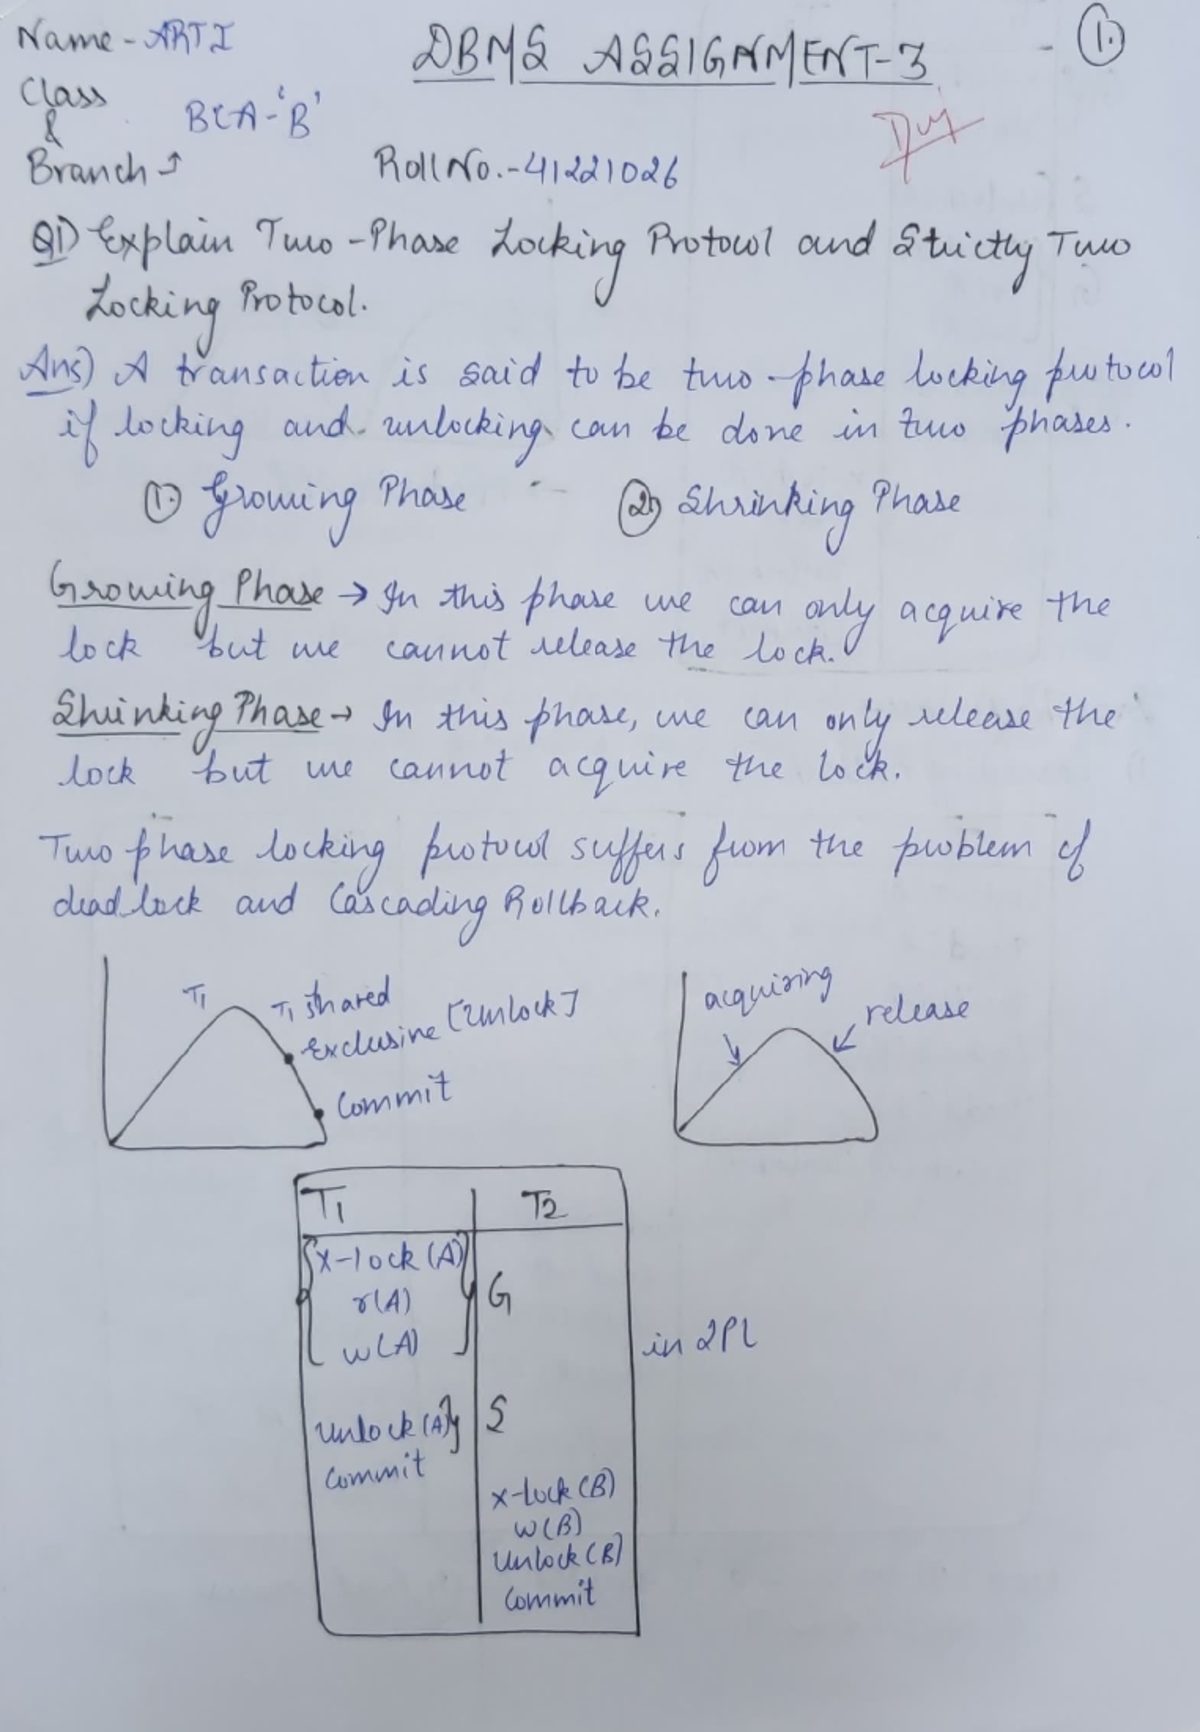 Name - ARTI
DBMS ASSIGNMENT-3 - 1.
Class
&
Branch →
BCA-'B'
Roll No.-41221026
Q1) Explain Two-Phase Locking Protocol and Strictly Two
Locking Protocol.
Ans) A transaction is said to be two-phase locking protocol
if locking and unlocking can be done in two phases.
1. Growing Phase 2. Shrinking Phase
Growing Phase → In this phase we can only acquire the
lock but we cannot release the lock.
Shrinking Phase → In this phase, we can only release the
lock but we cannot acquire the lock.
Two phase locking protocol suffers from the problem of
deadlock and Cascading Rollback.
T1
T1 shared
exclusine [Unlock]
Commit
acquiring
release
T1 T2
X-lock (A)
r(A) G
w(A)
in 2PL
Unlock (A) S
Commit
X-lock (B)
W(B)
Unlock (B)
Commit